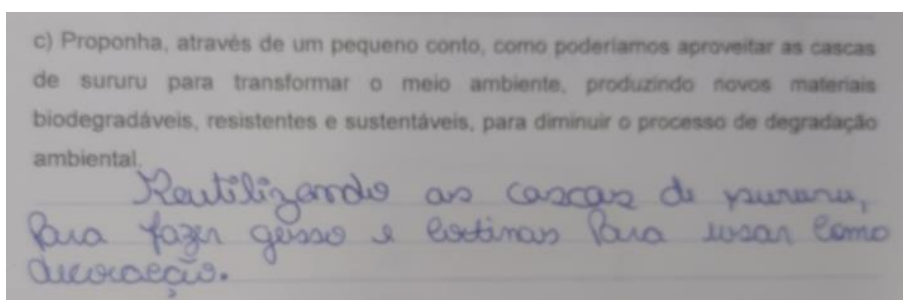 c) Proponha, através de um pequeno conto, como poderíamos aproveitar as cascas
de sururu para transformar o meio ambiente, produzindo novos materiais
biodegradáveis, resistentes e sustentáveis, para diminuir o processo de degradação
ambiental.
Reutilizando as cascas de sururu,
Para fazer gesso e cortinas Para usar como
decoração.